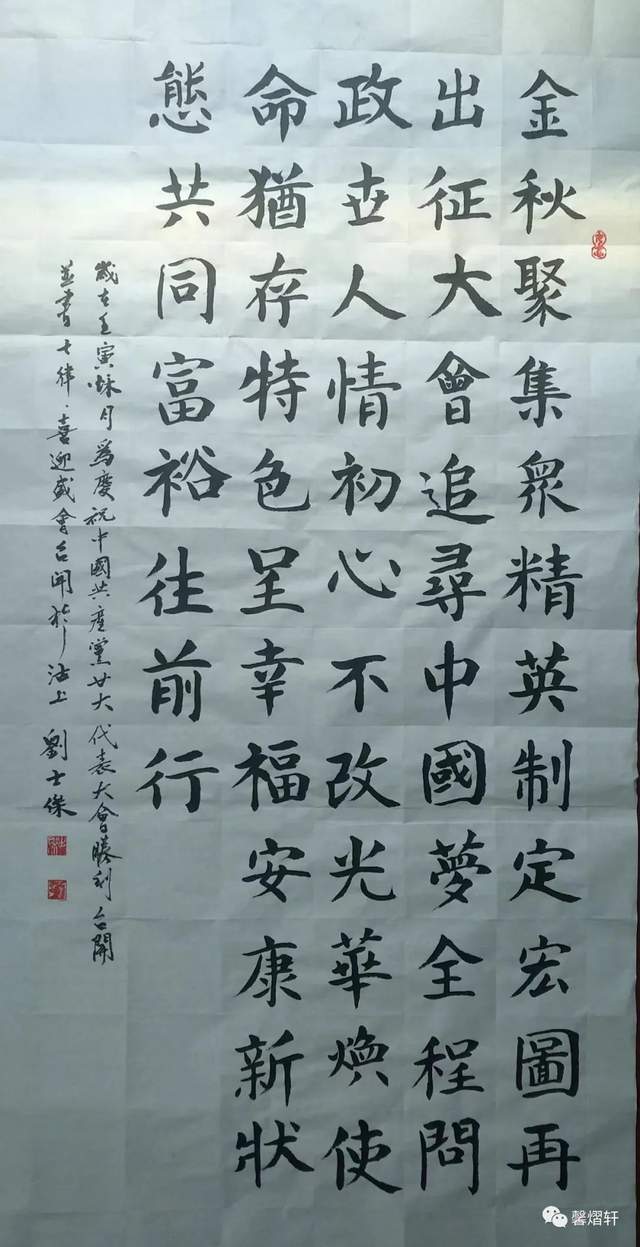 金秋聚集衆精英制定宏圖再
出征大會追尋中國夢全程問
政世人情初心不改光華煥使
命猶存特色呈幸福安康新狀
態共同富裕往前行
歲在壬寅秌月為慶祝中國共產黨廿大代表大會勝利召開
並書七律·喜迎盛會召開於上劉士傑
馨熠轩